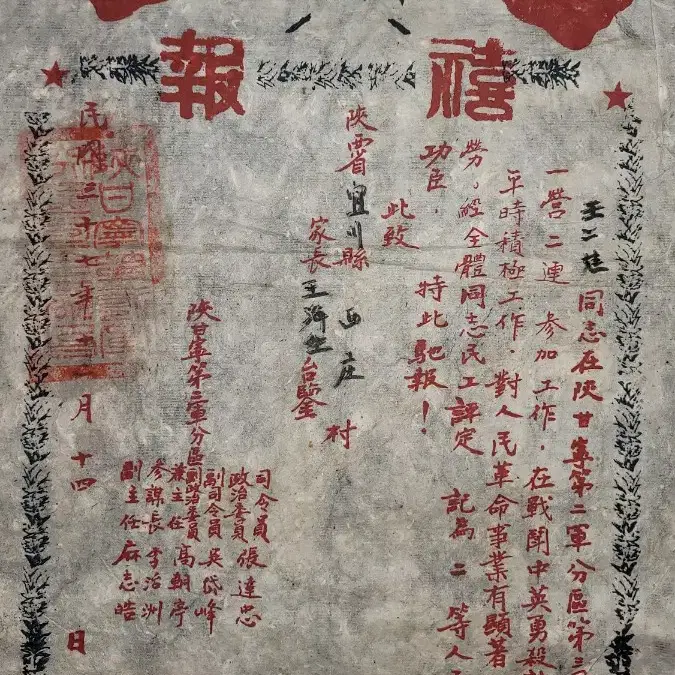 禧報
王二桂 同志在陝甘寧第二軍分區第三
一營二連 參加工作.在戰鬥中英勇殺
平時積極工作.對人民革命事業有顯著
勞,經全體同志民工評定 記為 二 等人
功臣. 特此馳報!
此致
陝西省宜川縣 西庄 村
家長王海生台鑒
陝甘寧第二軍分區
司令員
政治委員 張達忠
副司令員 吳岱峰
副政治委員
兼主任 高朝亭
參謀長 李治洲
副主任 麻志皓
民國三十七年 月 十四 日